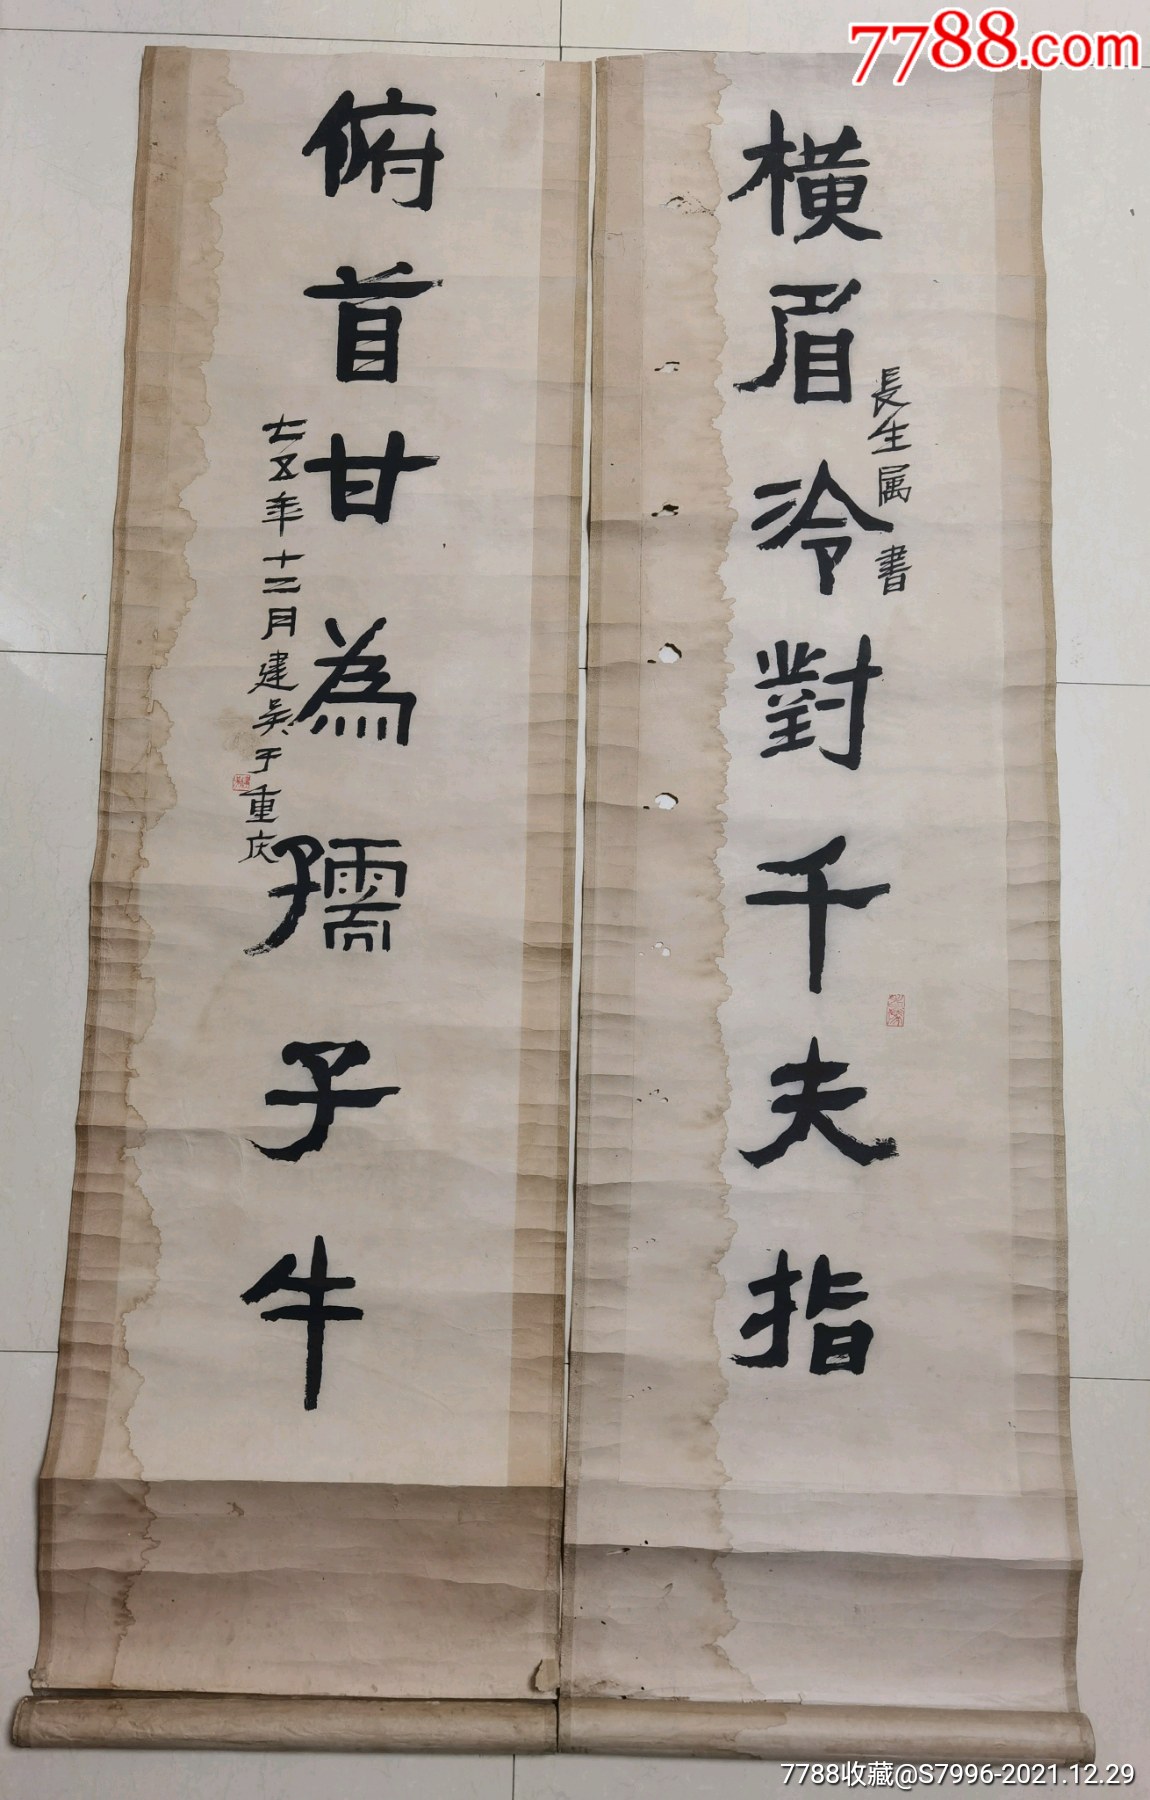 7788.com
橫眉冷對千夫指
長生属書
俯首甘為孺子牛
七五年十二月建吴于重庆
7788收藏@S7996-2021.12.29